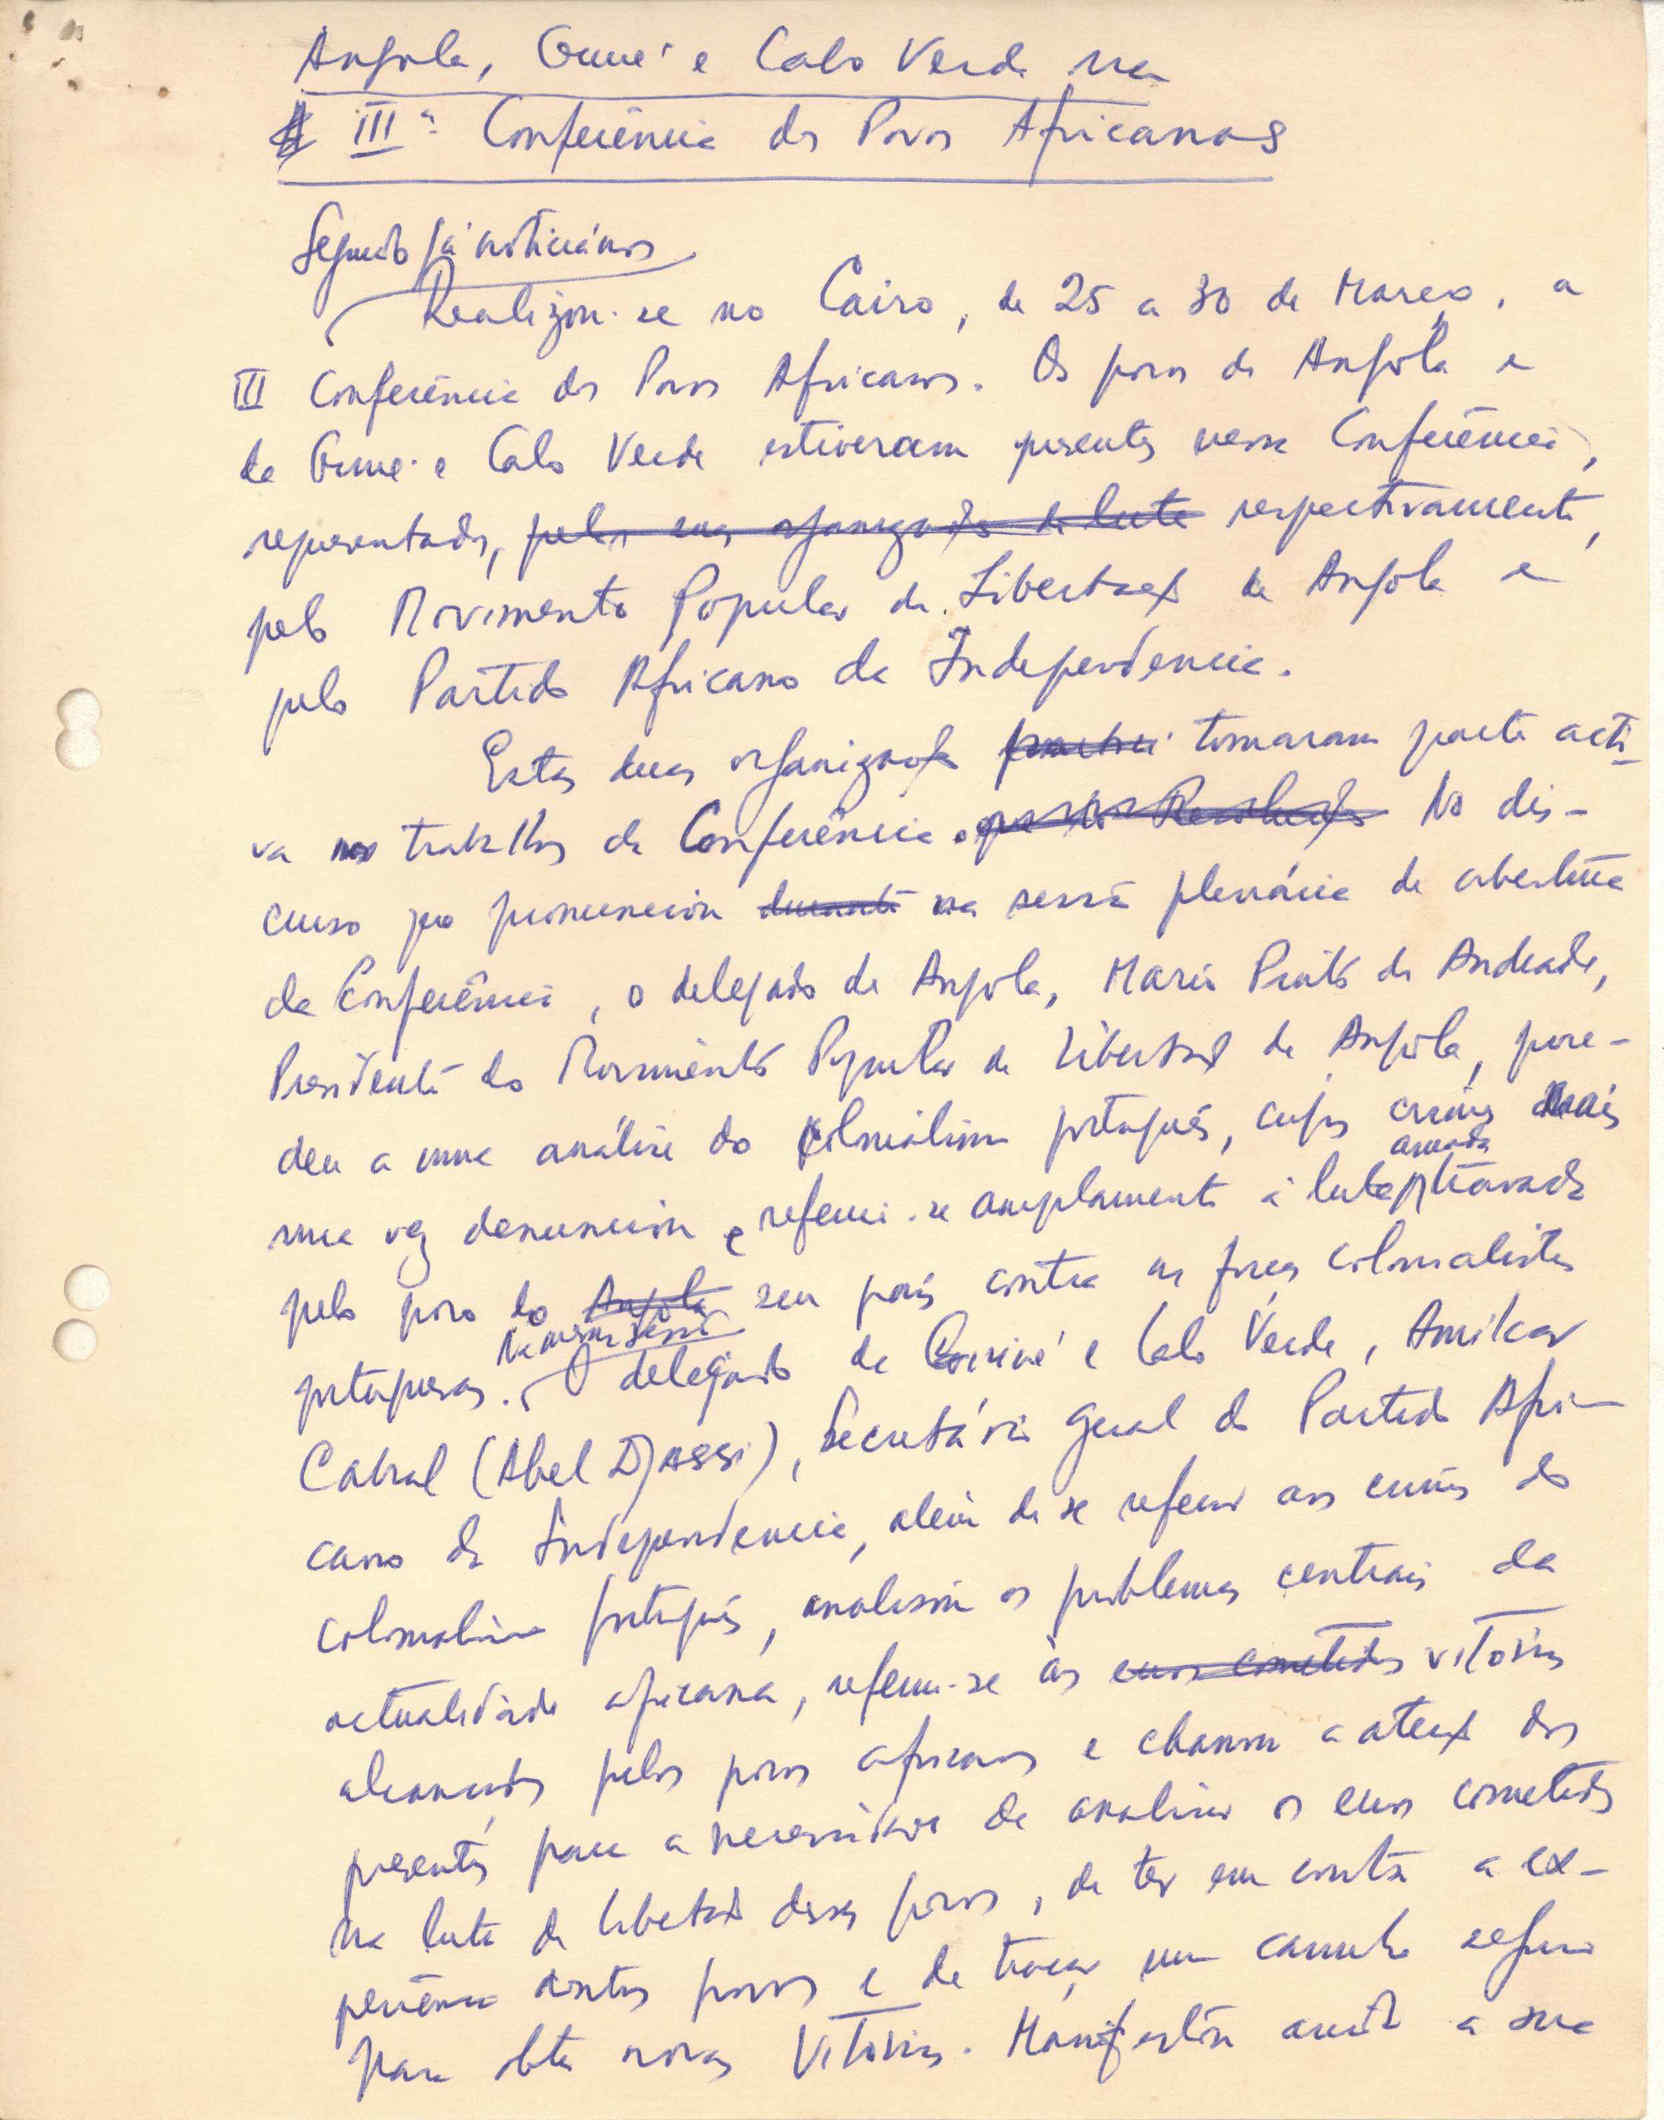 Angola, Guiné e Cabo Verde na
IIIª Conferência dos Povos Africanos
Segundo já noticiámos
Realizou-se no Cairo, de 25 a 30 de Março, a
III Conferência dos Povos Africanos. Os povos de Angola e
da Guiné e Cabo Verde estiveram presentes nessa Conferência,
representados, pelas suas organizações de luta respectivamente,
pelo Movimento Popular de Libertação de Angola e
pelo Partido Africano da Independência.
Estas duas organizações tomaram parte acti-
va nos trabalhos da Conferência. No dis-
curso que pronunciou durante na sessão plenária de abertura
da Conferência, o delegado de Angola, Mario Pinto de Andrade,
Presidente do Movimento Popular de Libertação de Angola, proce-
deu a uma análise do colonialismo português, cujos crimes mais
uma vez denunciou e referiu-se amplamente à luta armada travada
pelo povo do Angola seu país contra as forças colonialistas
portuguesas. Na mesma sessão O delegado da Guiné e Cabo Verde, Amilcar
Cabral (Abel Djassi), Secretário Geral do Partido Afri-
cano da Independência, além de se referir aos crimes do
colonialismo português, analisou os problemas centrais da
actualidade africana, referiu-se às erros cometidos vitórias
alcançadas pelos povos africanos e chamou a atenção dos
presentes para a necessidade de analisar os erros cometidos
na luta de libertação desses povos, de ter em conta a ex-
periência doutros povos e de traçar um caminho seguro
para obter novas vitórias. Manifestou ainda a sua